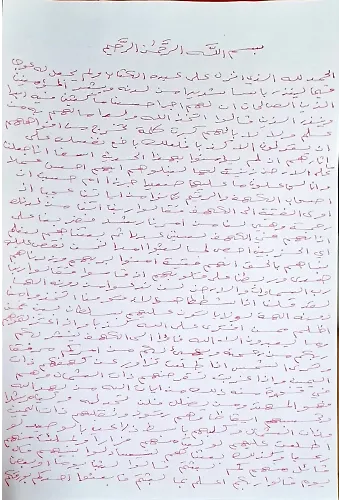 بسم الله الرحمن الرحيم
الحمد لله الذي انزل على عبده الكتاب ولم يجعل له عوجا
قيما لينذر باسا شديدا من لدنه ويبشر المؤمنين
الذين الصالحات ان لهم اجرا حسنا ماكثين فيه ابدا
وينذر الذين قالوا اتخذ الله ولدا ما لهم به من
علم ولا لابائهم كبرت كلمة تخرج من افواههم
ان يقولون الا كذبا فلعلك باخع نفسك على
اثارهم ان لم يؤمنوا بهذا الحديث اسفا انا جعلنا
ما على الارض زينة لها لنبلوهم ايهم احسن عملا
وانا لجاعلون ما عليها صعيدا جرزا ام حسبت ان
اصحاب الكهف والرقيم كانوا من اياتنا عجبا اذ
اوى الفتية الى الكهف فقالوا ربنا اتنا من لدنك
رحمة وهيئ لنا من امرنا رشدا فضربنا على
اذانهم في الكهف سنين عددا ثم بعثناهم لنعلم
اي الحزبين احصى لما لبثوا امدا نحن نقص عليك
نباهم بالحق انهم فتية امنوا بربهم وزدناهم
هدى وربطنا على قلوبهم اذ قاموا فقالوا ربنا
رب السموات والارض لن ندعو من دونه الها
لقد قلنا اذا شططا هؤلاء قومنا اتخذوا من
دونه الهة لولا ياتون عليهم بسلطان بين فمن
اظلم ممن افترى على الله كذبا واذ اعتزلتموهم
وما يعبدون الا الله فاووا الى الكهف ينشر لكم
ربكم من رحمته ويهيئ لكم من امركم مرفقا
وترى الشمس اذا طلعت تزاور عن كهفهم ذات
اليمين واذا غربت تقرضهم ذات الشمال وهم
في فجوة منه ذلك من ايات الله من يهد الله
فهو المهتد ومن يضلل فلن تجد له وليا مرشدا
وتحسبهم ايقاظا وهم رقود ونقلبهم ذات اليمين
وذات الشمال وكلبهم باسط ذراعيه بالوصيد لو
اطلعت عليهم لوليت منهم فرارا ولملئت منهم
رعبا وكذلك بعثناهم ليتساءلوا بينهم قال
قائل منهم كم لبثتم قالوا لبثنا يوما او بعض
يوم قالوا ربكم اعلم بما لبثتم فابعثوا احدكم بورقكم